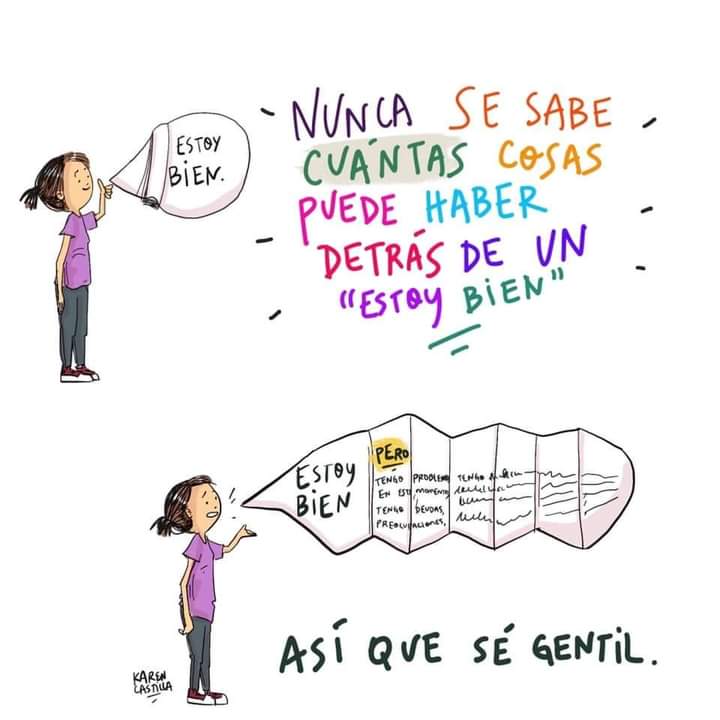 ESTOY
BIEN.
NUNCA SE SABE
CUÁNTAS COSAS
PUEDE HABER
DETRÁS DE UN
"ESTOY BIEN"
ESTOY
BIEN
PERO
TENGO PROBLEMAS TENGO
EN ESTE MOMENTO,
TENGO DEUDAS,
PREOCUPACIONES,
ASÍ QUE SÉ GENTIL.
KAREN
CASTILLA